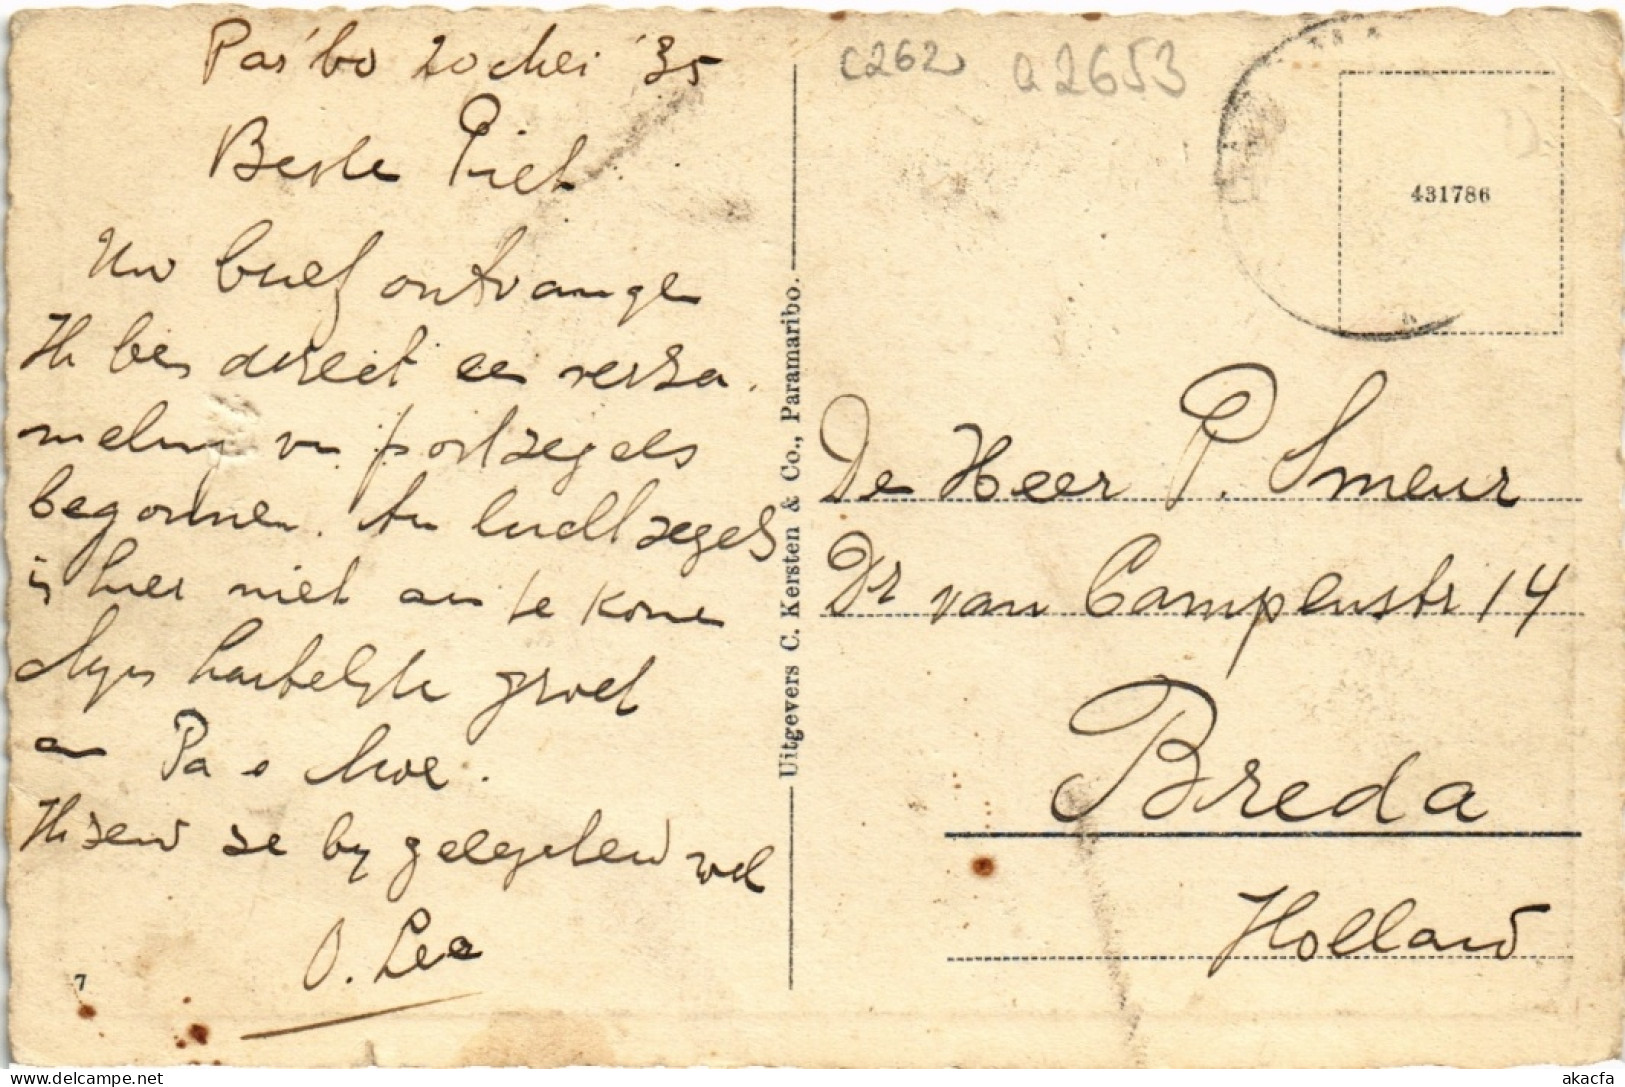 Par'bo 20 Mei '35
Beste Piet
Uw brief ontvange
Ik ben direct een verza
meling van postzegels
begonnen. An luchtzegels
is hier niet an te kome
Myn hartelyke groet
an Pa & Moe.
Ik zend ze by gelegeheid wel
O. Lee
7
Uitgevers C. Kersten & Co., Paramaribo.
c262 a2653
431786
De Heer P. Smeur
Dr van Campenstr 14
Breda
Holland
www.delcampe.net
akacfa